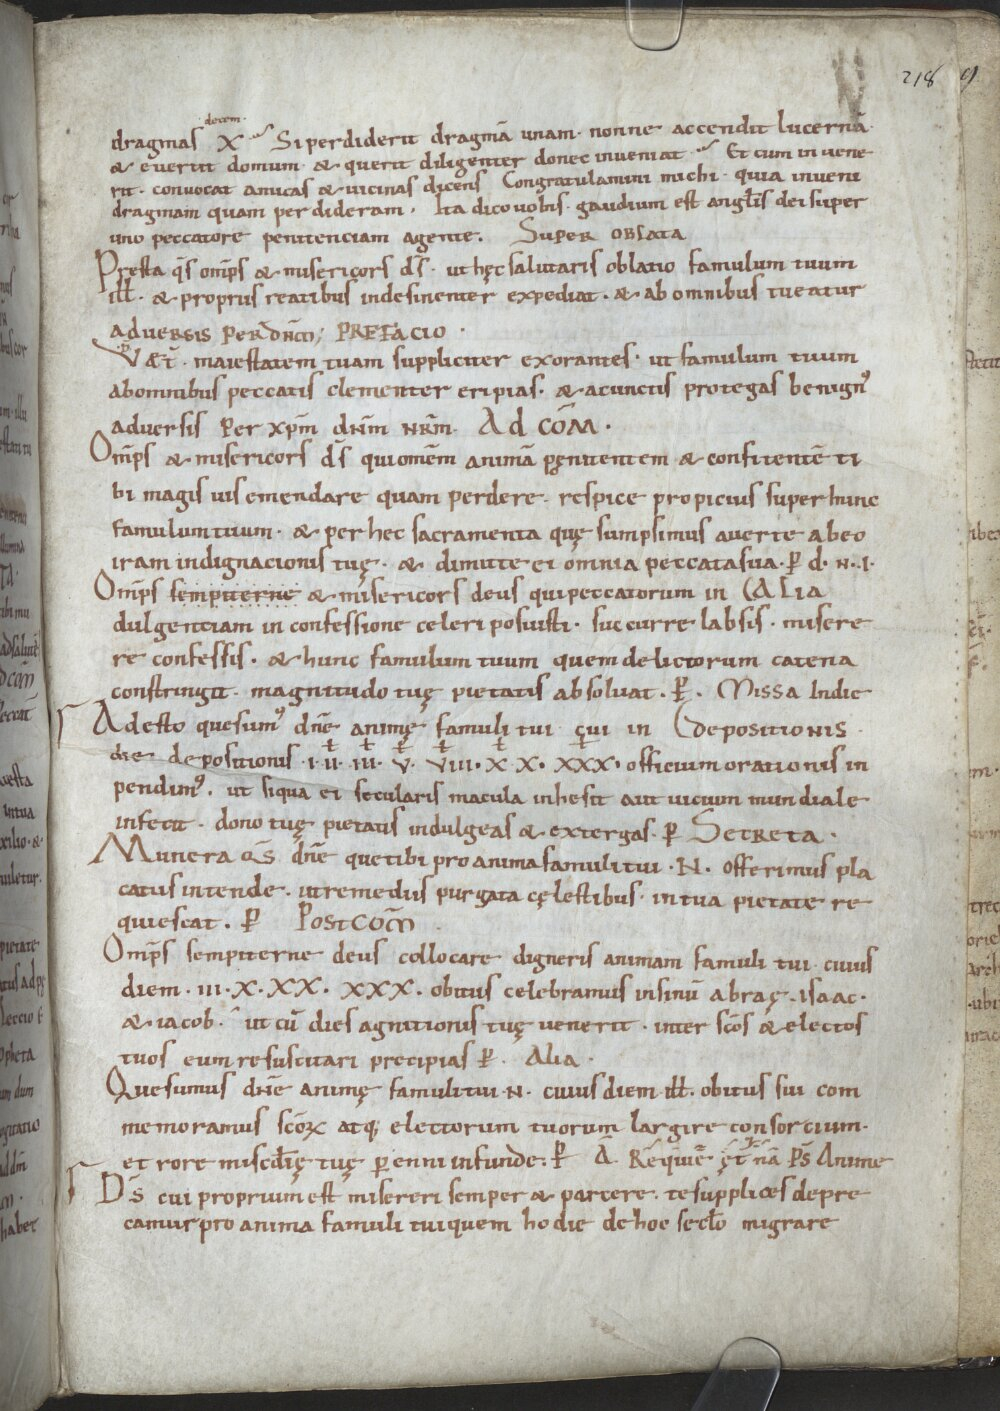 218 9
decem
dragmas X Si perdiderit dragmā unam · nonne accendit lucernā ·
& euertit domum · & querit diligenter donec inueniat · Et cum inuene
rit · conuocat amicas & uicinas dicens Congratulamini michi · quia inueni
dragmam quam perdideram · Ita dico uobis · gaudium est angƚis dei super
uno peccatore penitenciam agente. SUPER OBLATA
Presta q̄s omp̄s & misericors d̄s · ut hęc salutaris oblatio famulum tuum
iƚƚ · & propriis reatibus indesinenter expediat · & ab omnibus tueatur
aduersis per dn̄m; PREFACIO ·
V &ē · maiestatem tuam suppliciter exorantes · ut famulum tuum
ab omnibus peccatis clementer eripias · & a cunctis protegas benign᾿
aduersis Per xp̄m dn̄m nr̄m · Ad COM̄ ·
Omp̄s & misericors d̄s qui omēm animā pęnitentem & confitentē ti
bi magis uis emendare quam perdere · respice propicius super hunc
famulum tuum · & per hec sacramenta quę sumpsimus auerte ab eo
iram indignacionis tuę · & dimitte ei omnia peccata sua · P̄ d · n · i ·
Omp̄s sempiterne & misericors deus qui peccatorum in (ALIA
dulgentiam in confessione celeri posuisti · succurre labsis · misere
re confessis · & hunc famulum tuum quem delictorum catena
constringit · magnitudo tuę pietatis absoluat · P̄ · Missa In die
Adesto quesum᾿ dn̄e animę famuli tui cui in (depositionis ·
die depositionis · i · ii · iii · v · viii · x x · xxx · officium orationis in
pendim᾿ · ut siqua ei secularis macula inhesit aut uicium mundiale
infecit · dono tuę pietatis indulgeas & extergas · P̄ Secreta ·
Munera q̄s dn̄e que tibi pro anima famuli tui · N · offerimus pla
catus intende · ut remediis purgata cęlestibus · in tua pietate re
quiescat · P̄ PostCOM̄ ·
Omp̄s sempiterne deus collocare digneris animam famuli tui cuius
diem · iii · X · XX · XXX · obitus celebramus in sinū abraę · isaac ·
& iacob · ut cū dies agnitionis tuę uenerit · inter sc̄os & electos
tuos eum resuscitari precipias P̄ · Alia ·
Quesumus dn̄e animę famuli tui · N · cuius diem iƚƚ obitus sui com
memoramus sc̄oꝝ atq; electorum tuorum largire consorcium ·
et rore miscd̄ię tuę perenni infunde: P̄ A · Reqiuē ęt nā Ps̄ Anime
D̄s cui proprium est misereri semper & parcere · te supplices depre
camur pro anima famuli tui quem hodie de hoc secƚo migrare